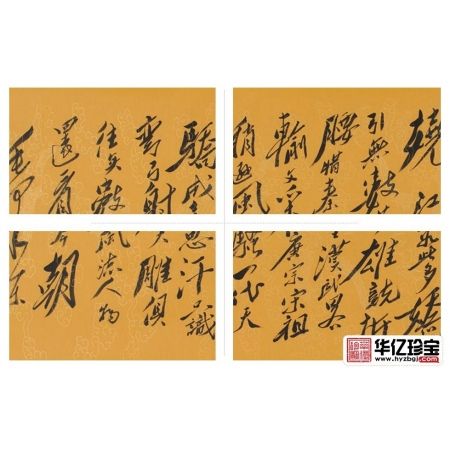 嬈江山如此多嬌
引無數英雄競折
腰惜秦皇漢武略
輸文采唐宗宋祖
稍遜風騷一代天
驕成吉思汗只識
彎弓射大雕俱
往矣數風流人物
還看今朝
华亿珍宝
www.hyzbgj.com